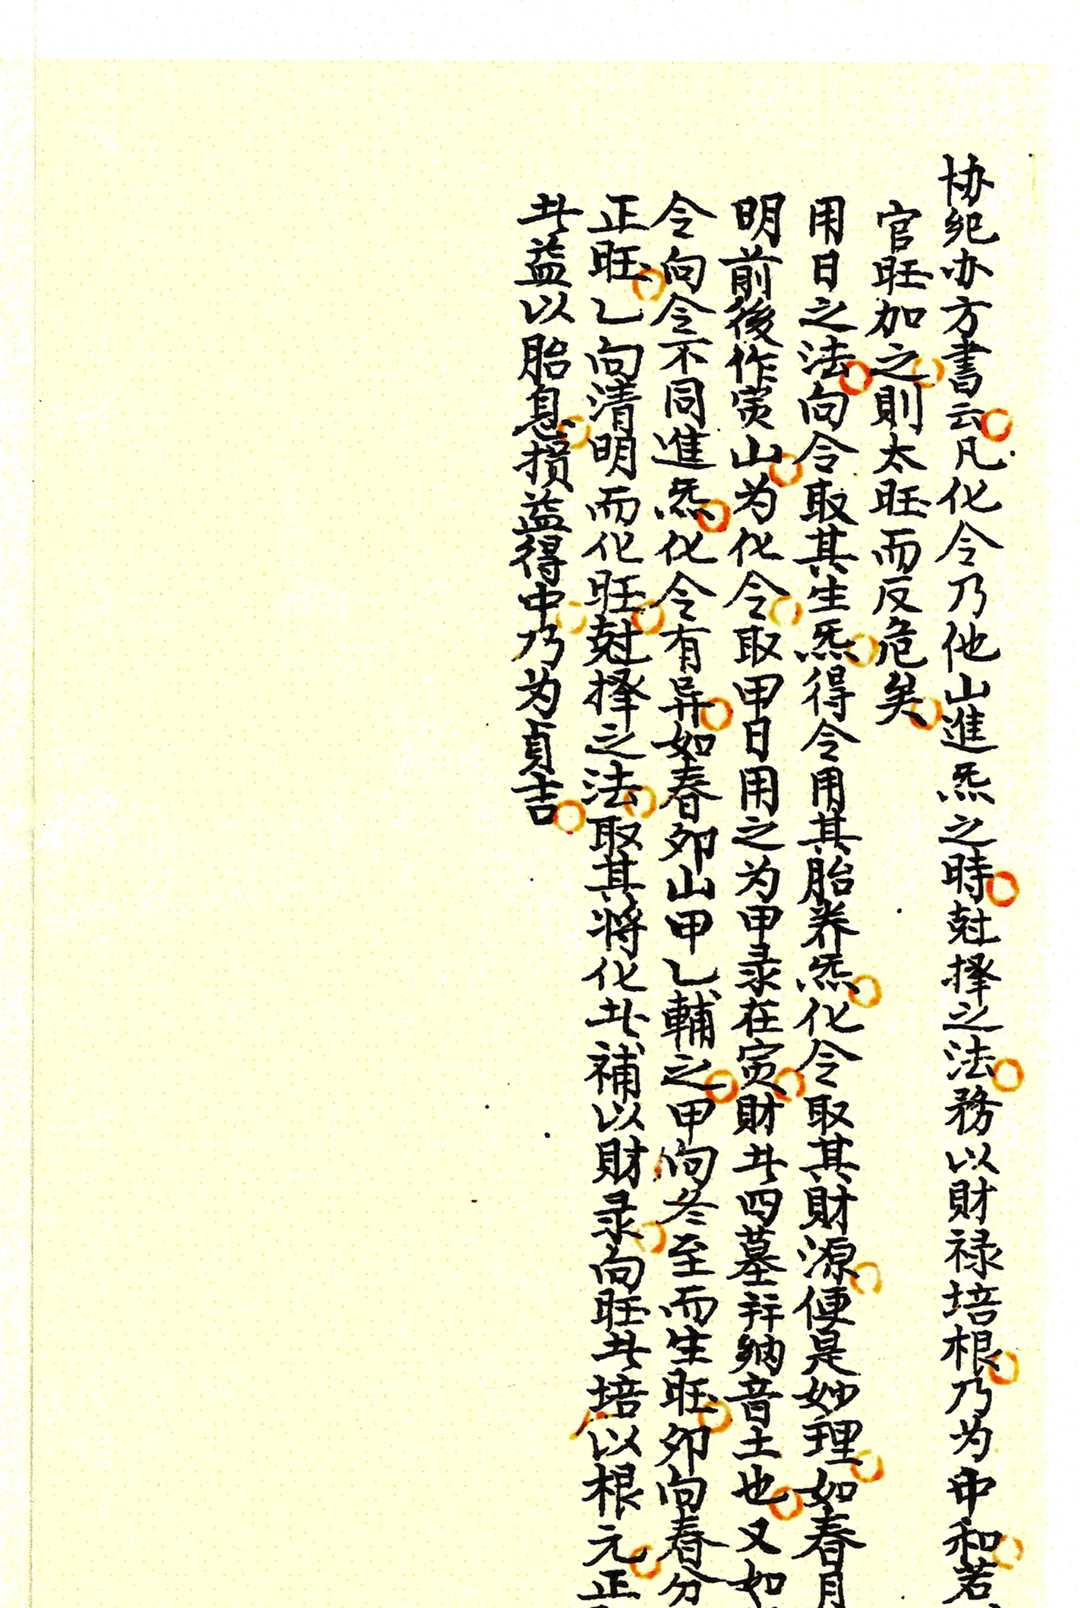 协紀办方書云凡化令乃他山進炁之時尅擇之法務以財禄培根乃为中和若
官旺加之則太旺而反危矣
用日之法向令取其生炁得令用其胎养炁化令取其財源便是妙理如春月
明前後作寅山为化令取甲日用之为甲录在寅財㐀四墓辛纳音土也又如
令向令不同進炁化令有异如春卯山甲乙輔之甲向冬至而生旺卯向春分
正旺乙向清明而化旺尅擇之法取其将化㐀補以財录向旺㐀培以根元正
㐀益以胎息损益得中乃为貞吉